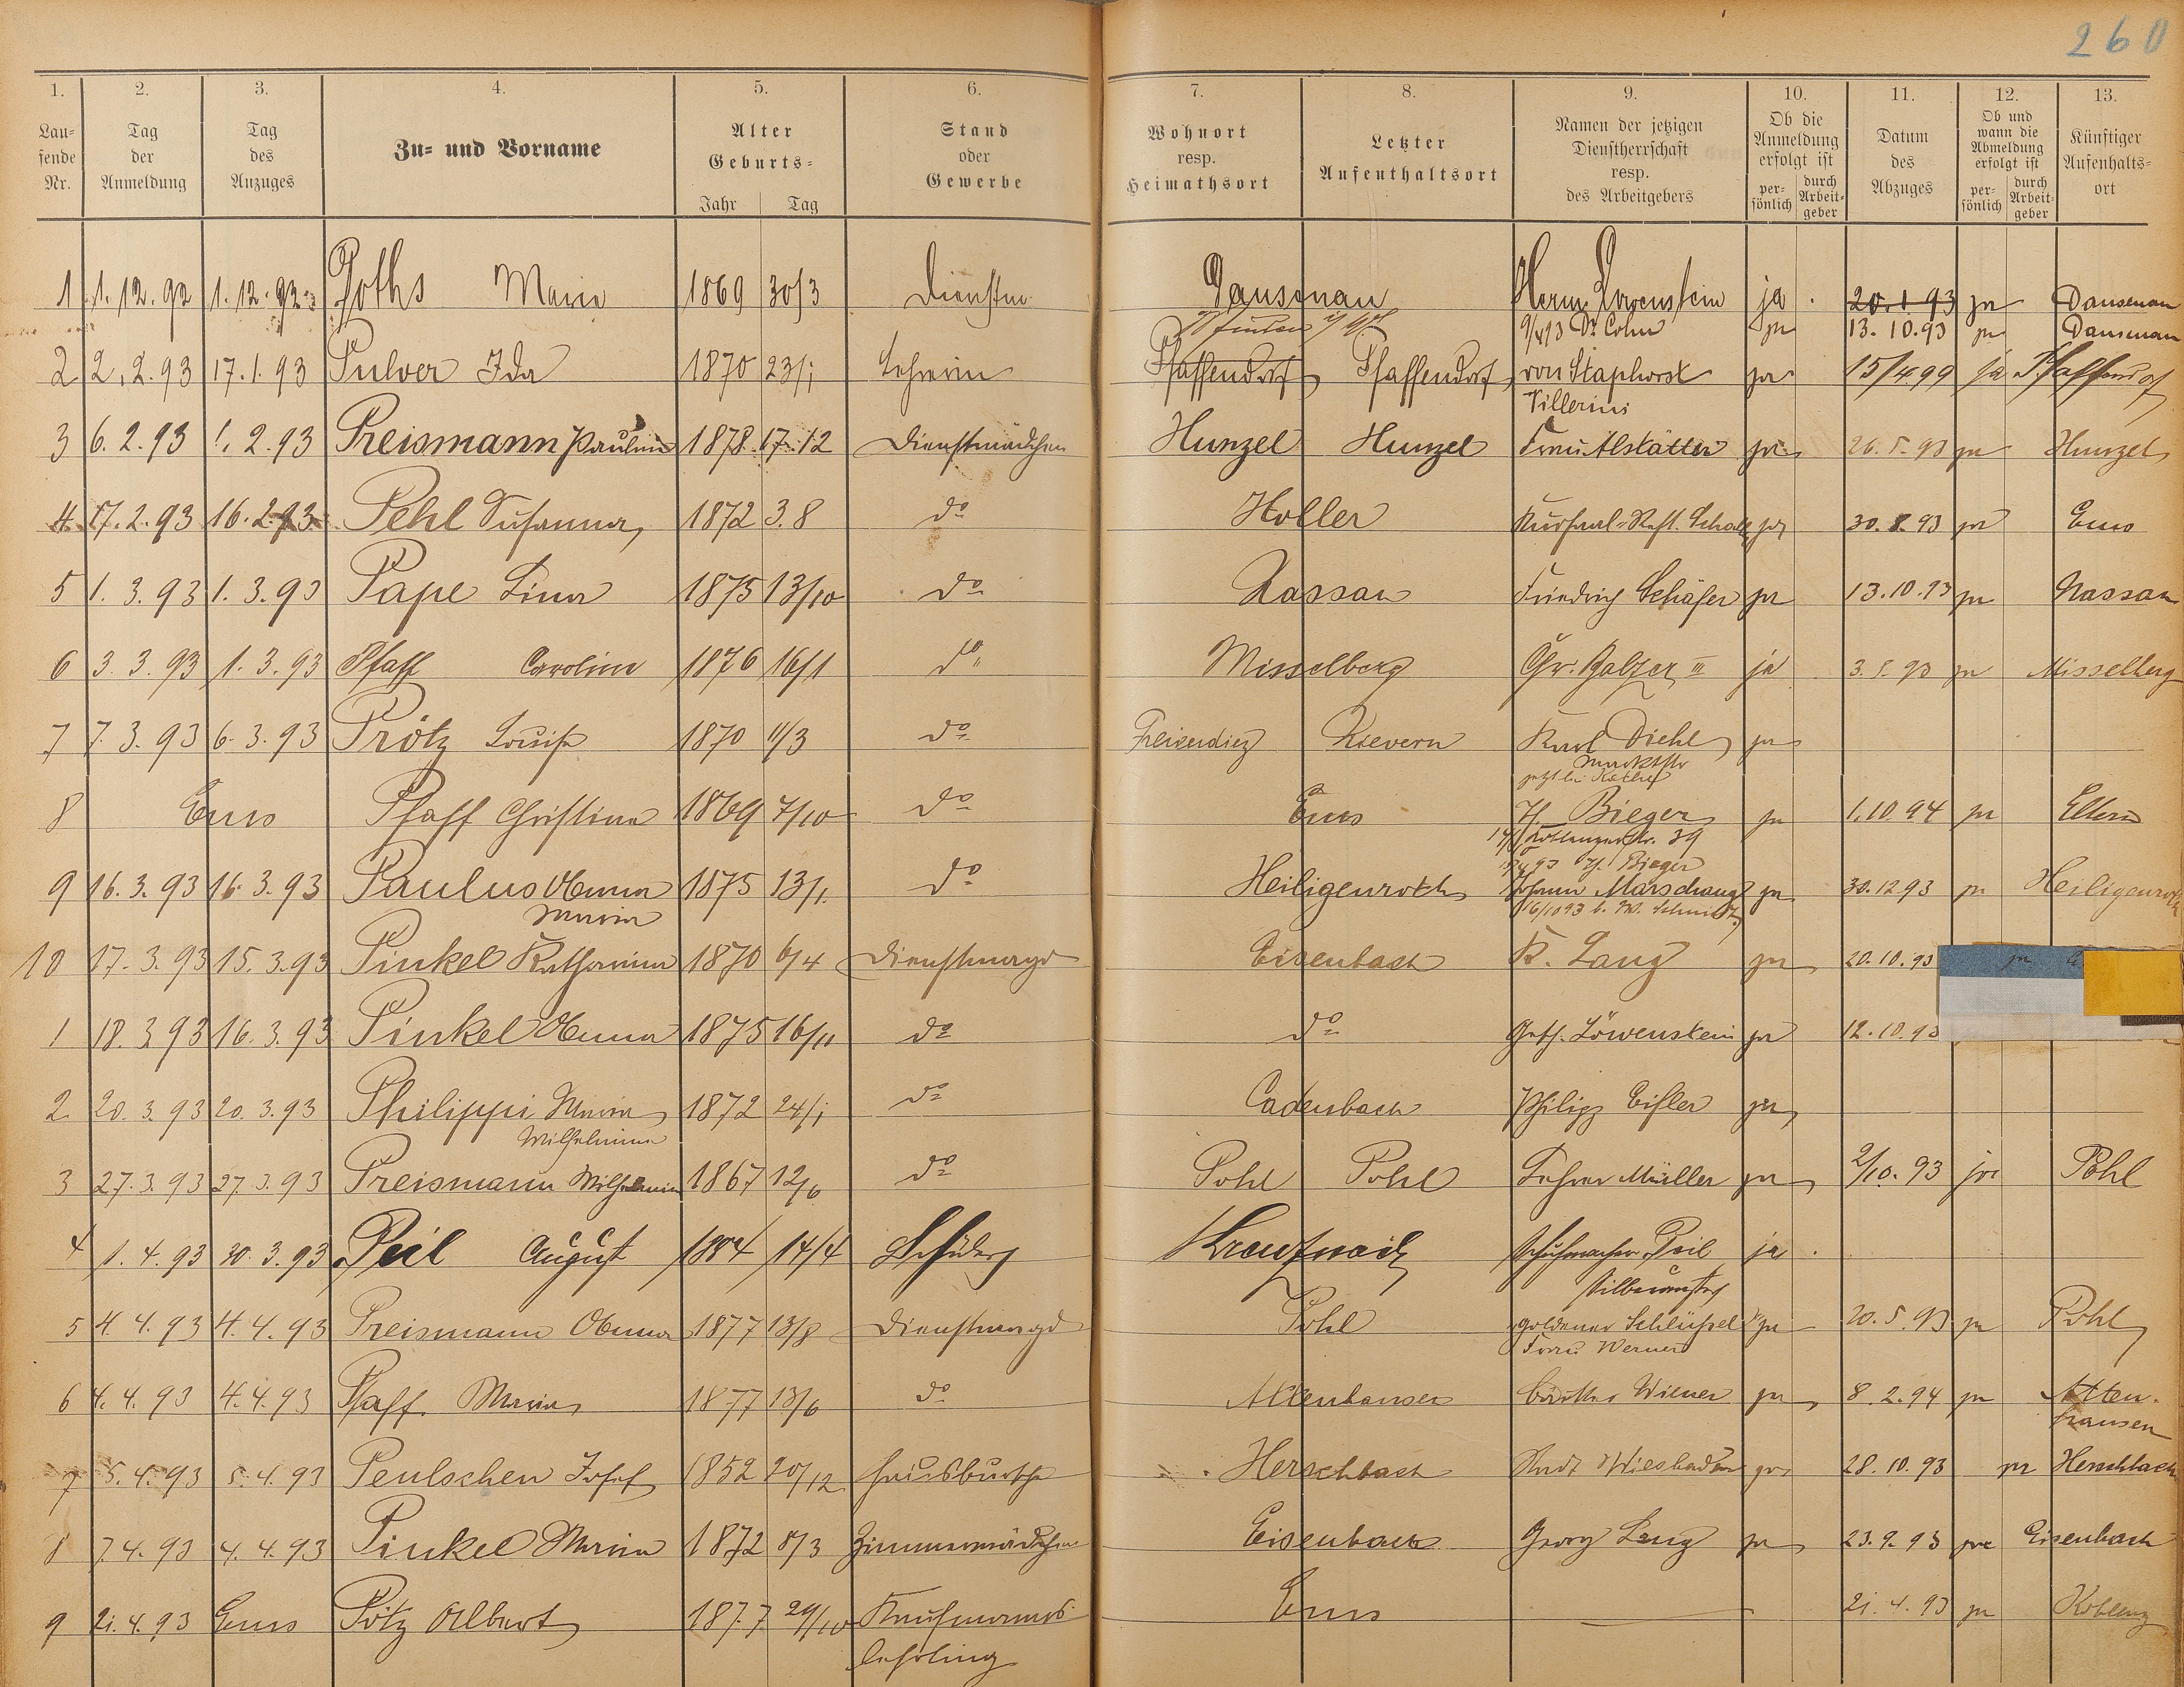 260
1. 2. 3. 4. 5. 6. 7. 8. 9. 10. 11. 12. 13.
Lau-
fende
Nr.
Tag
der
Anmeldung
Tag
des
Anzuges
Zu- und Vorname
Alter
Geburts-
Jahr Tag
Stand
oder
Gewerbe
Wohnort
resp.
Heimathsort
Letzter
Aufenthaltsort
Namen der jetzigen
Dienstherrschaft
resp.
des Arbeitgebers
Ob die
Anmeldung
erfolgt ist
per-
sönlich
durch
Arbeit-
geber
Datum
des
Abzuges
Ob und
wann die
Abmeldung
erfolgt ist
per-
sönlich
durch
Arbeit-
geber
Künftiger
Aufenthalts-
ort
1 1.12.92 1.12.92 Poths Marie 1869 30/3 Dienstm Dausenau Herm Löwenstein ja 20.1.93 ja Dausenau
9/4 93 Dr Cohn ja 13.10.93 ja Dausenau
2 2.2.93 17.1.93 Pulver Ida 1870 23/1 Lehrerin Pfaffendorf Pfaffendorf von Staphorst ja 15/4 99 ja Pfaffendorf
3 6.2.93 1.2.93 Preismann Pauline 1878 17.12 Dienstmädchen Hunzel Hunzel Frau Alstätter ja 26.5.93 ja Hunzel
4 17.2.93 16.2.93 Pehl Susanna 1872 3.8 do Holler Kursaal-Rest. ja 30.8.93 ja Ems
5 1.3.93 1.3.93 Pape Lina 1875 13/10 do Nassau Friedrich Schäfer ja 13.10.93 ja Nassau
6 3.3.93 1.3.93 Pfaff Caroline 1876 16/1 do Misselberg Chr. Balzer III ja 3.5.93 ja Misselberg
7 7.3.93 6.3.93 Prötz Louise 1870 11/3 do Freiendiez Kievern Karl Diehl ja
Marktstr
8 Ems Pfaff Christina 1869 7/10 do Ems H. Bieger ja 1.10.94 ja Eltern
39
H. Bieger
9 16.3.93 16.3.93 Paulus Anna 1875 13/1 do Heiligenroth Johann Marschang ja 30.12.93 ja Heiligenroth
Maria 16/10 93 b. W. Schmidt
10 17.3.93 15.3.93 Pinkel Katharina 1870 6/4 Dienstmagd Eisenbach K. Lang ja 20.10.93 ja
1 18.3.93 16.3.93 Pinkel Anna 1875 16/11 do do Gebh. Löwenstein ja 12.10.93
2 20.3.93 20.3.93 Philippi Maria 1872 24/1 do Cadenbach Philipp Eisler ja
Wilhelmine
3 27.3.93 27.3.93 Preismann Wilhelmine 1867 12/6 do Pohl Pohl Lehrer Müller ja 2/10.93 ja Pohl
4 1.4.93 30.3.93 Peil August 1884 14/4 Kreuznach Schuhmacher Peil ja
Silberaustr
5 4.4.93 4.4.93 Preismann Anna 1877 13/8 Dienstmagd Pohl goldener Schlüssel ja 20.5.93 ja Pohl
Frau Werner
6 4.4.93 4.4.93 Pfaff Maria 1877 13/6 do Attenhausen Bäcker Wiener ja 8.2.94 ja Atten-
hausen
7 5.4.93 5.4.93 Peulschen Josef 1852 20/12 Hausbursche Herschbach Stadt Wiesbaden ja 28.10.93 ja Herschbach
8 7.4.93 4.4.93 Pinkel Maria 1872 8/3 Zimmermädchen Eisenbach Georg Lang ja 23.9.93 ja Eisenbach
9 21.4.93 Ems Pötz Albert 1877 29/10 Kaufmanns- Ems 21.4.93 ja Koblenz
lehrling